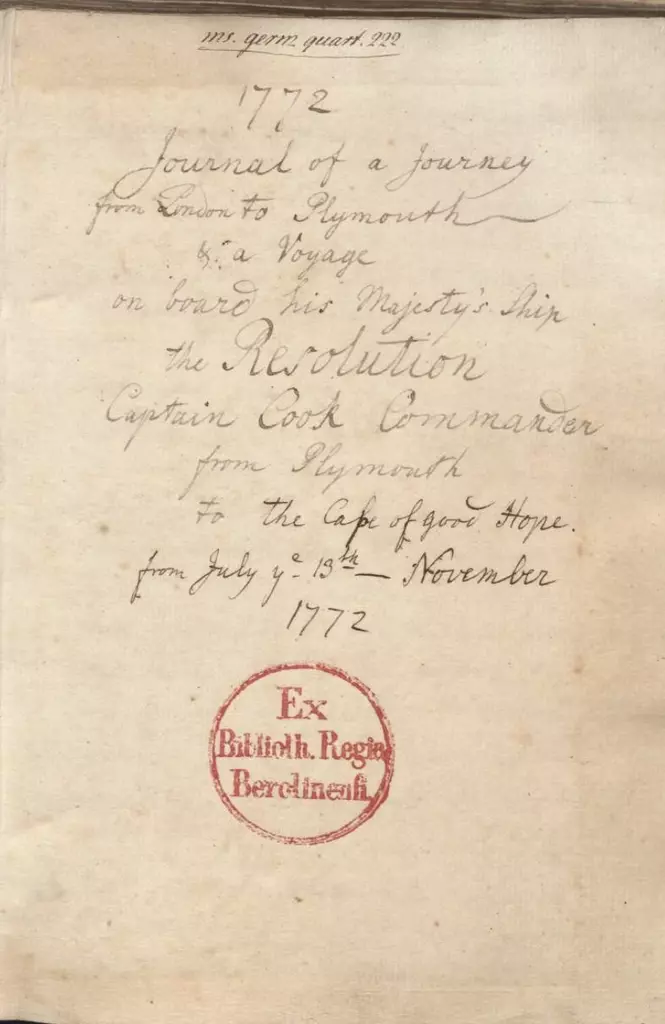 ms. germ. quart. 222
1772
Journal of a Journey
from London to Plymouth
& a Voyage
on board his Majesty's Ship
the Resolution
Captain Cook Commander
from Plymouth
to the Cape of good Hope.
from July yᵉ 13ᵗʰ — November
1772
Ex
Biblioth. Regia
Berolinensi.